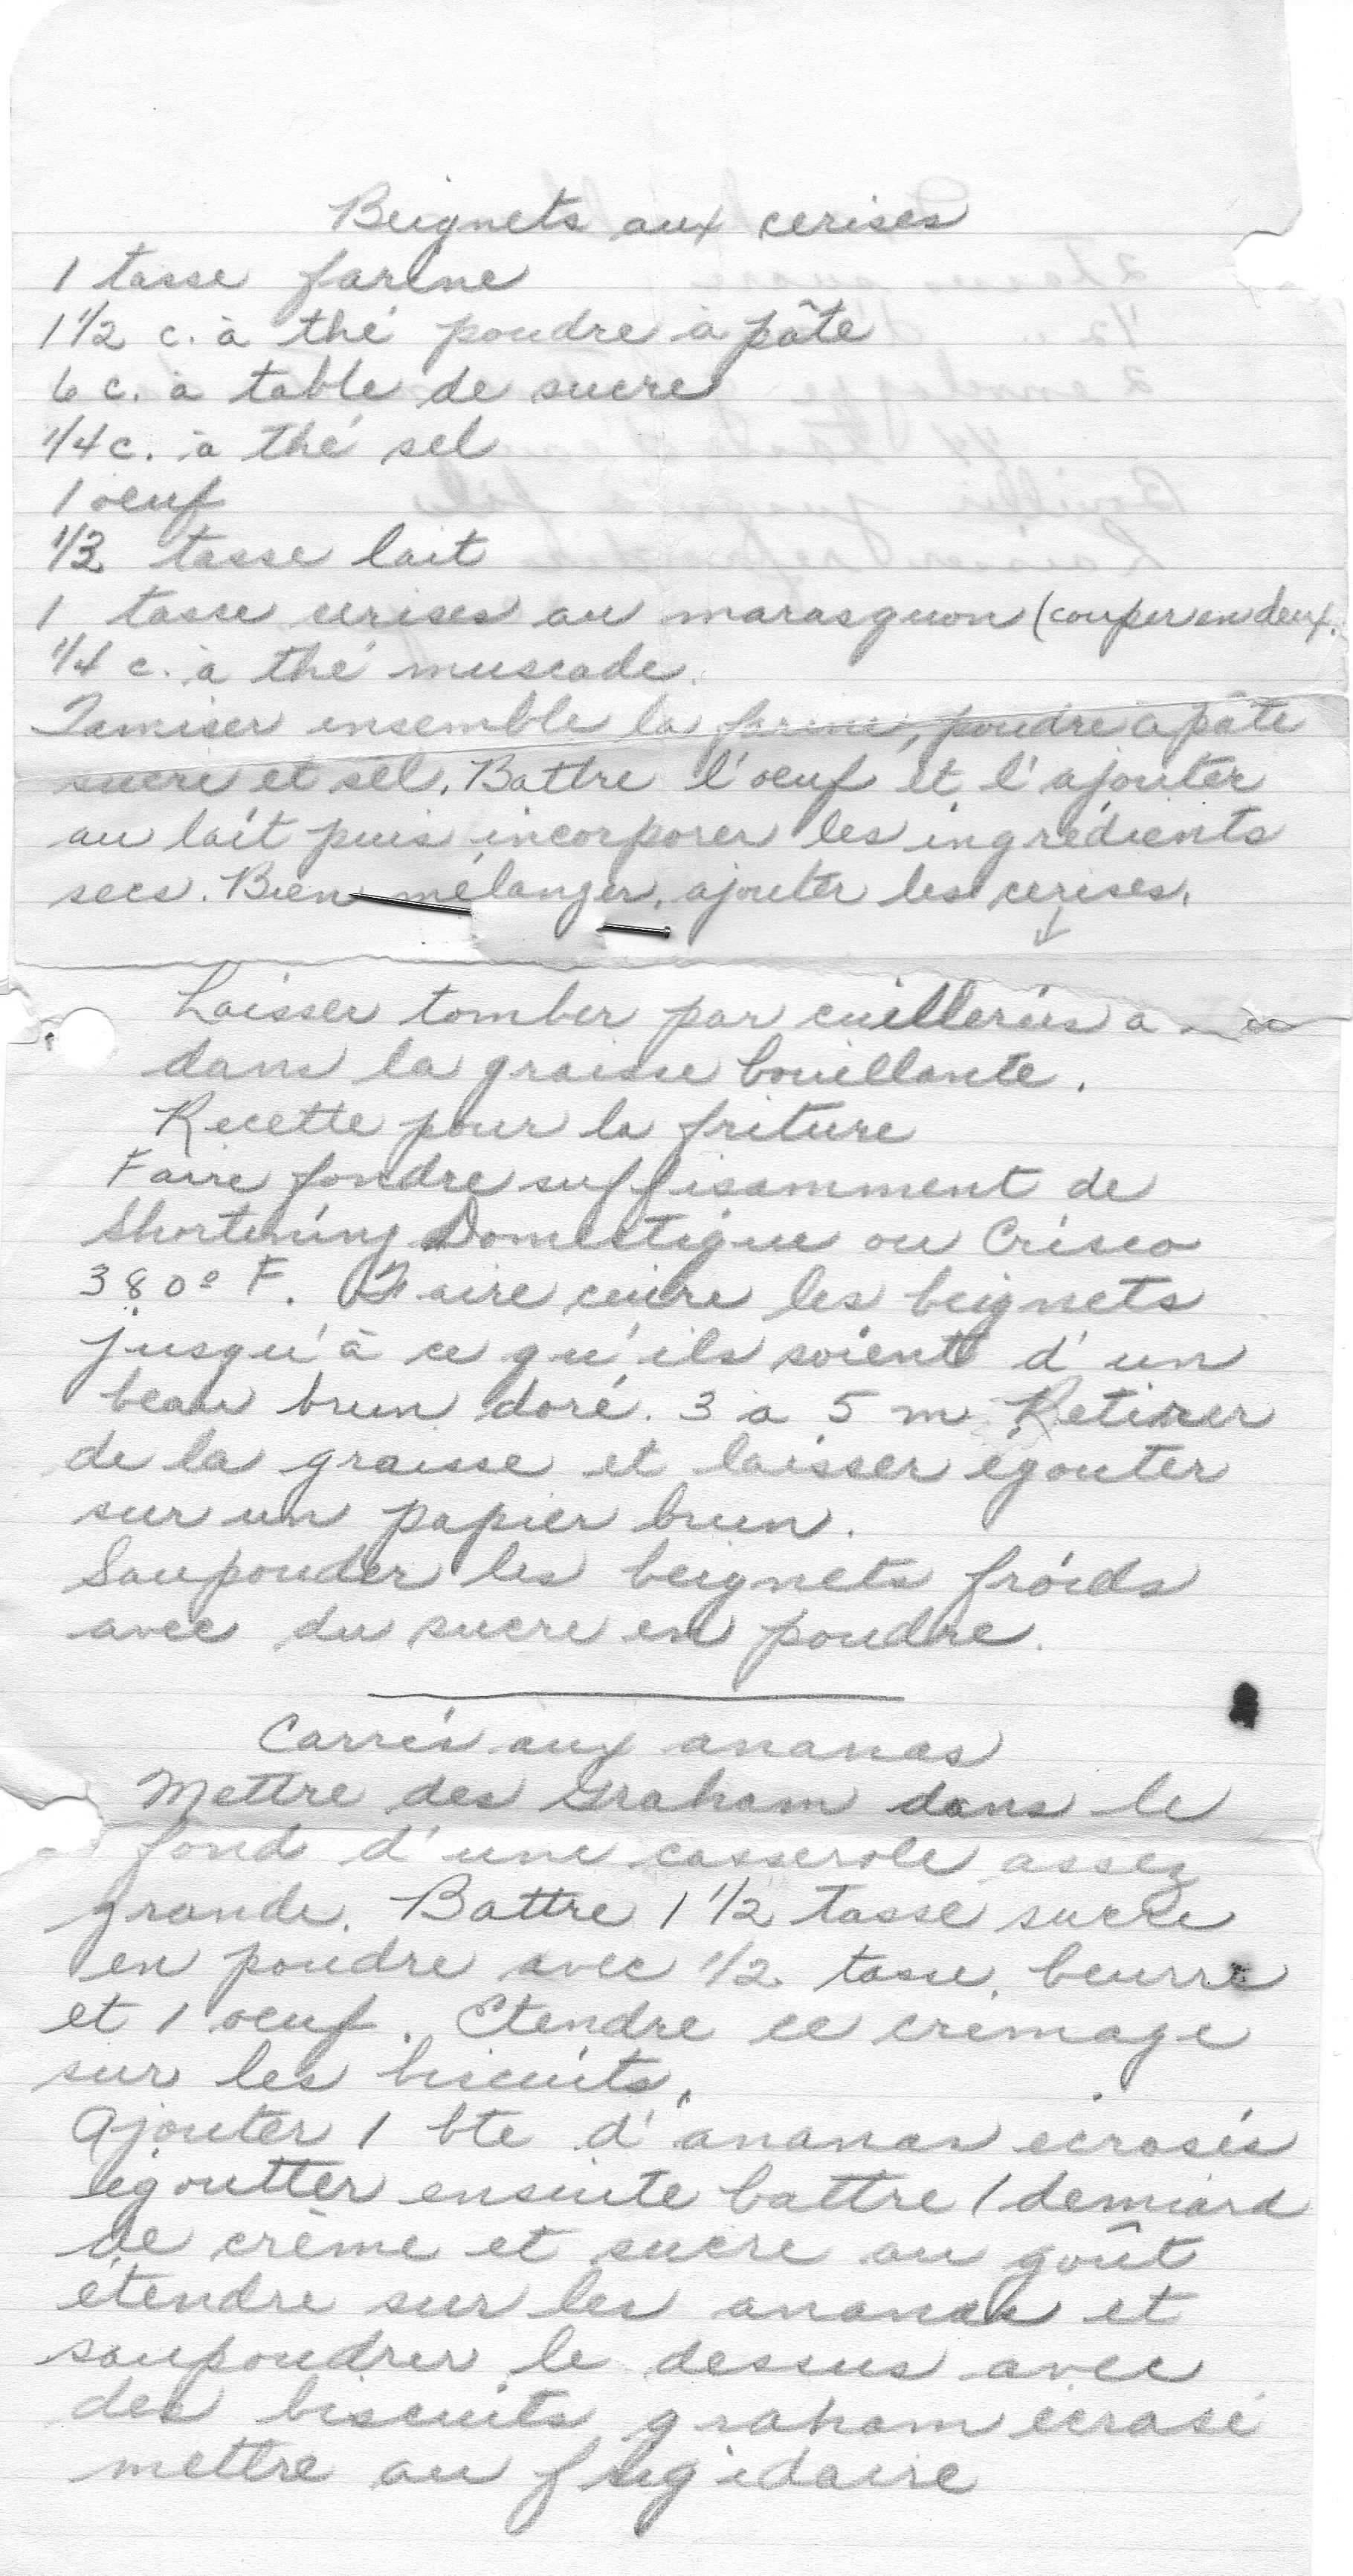 Beignets aux cerises
1 tasse farine
1 1/2 c. à thé poudre à pâte
6 c. à table de sucre
1/4 c. à thé sel
1 oeuf
1/3 tasse lait
1 tasse cerises au marasquon (couper en deux.
1/4 c. à thé muscade.
Tamiser ensemble la farine, poudre à pâte
sucre et sel. Battre l'oeuf et l'ajouter
au lait puis incorporer les ingrédients
secs. Bien mélanger, ajouter les cerises.
Laisser tomber par cuillerées à
dans la graisse bouillante.
Recette pour la friture
Faire fondre suffisamment de
Shortening Domestique ou Crisco
380° F. Faire cuire les beignets
jusqu'à ce qu'ils soient d'un
beau brun doré. 3 à 5 m Retirer
de la graisse et laisser égouter
sur un papier brun.
Saupouder les beignets froids
avec du sucre en poudre.
Carrés aux ananas
Mettre des Graham dans le
fond d'une casserole assez
grande. Battre 1 1/2 tasse sucre
en poudre avec 1/2 tasse. beurre
et 1 oeuf. Etendre ce crémage
sur les biscuits.
Ajouter 1 bte d'ananas écrasés
égoutter ensuite battre 1 demiard
de crème et sucre au goût
étendre sur les ananas et
saupoudrer le dessus avec
des biscuits graham écrasé
mettre au frigidaire